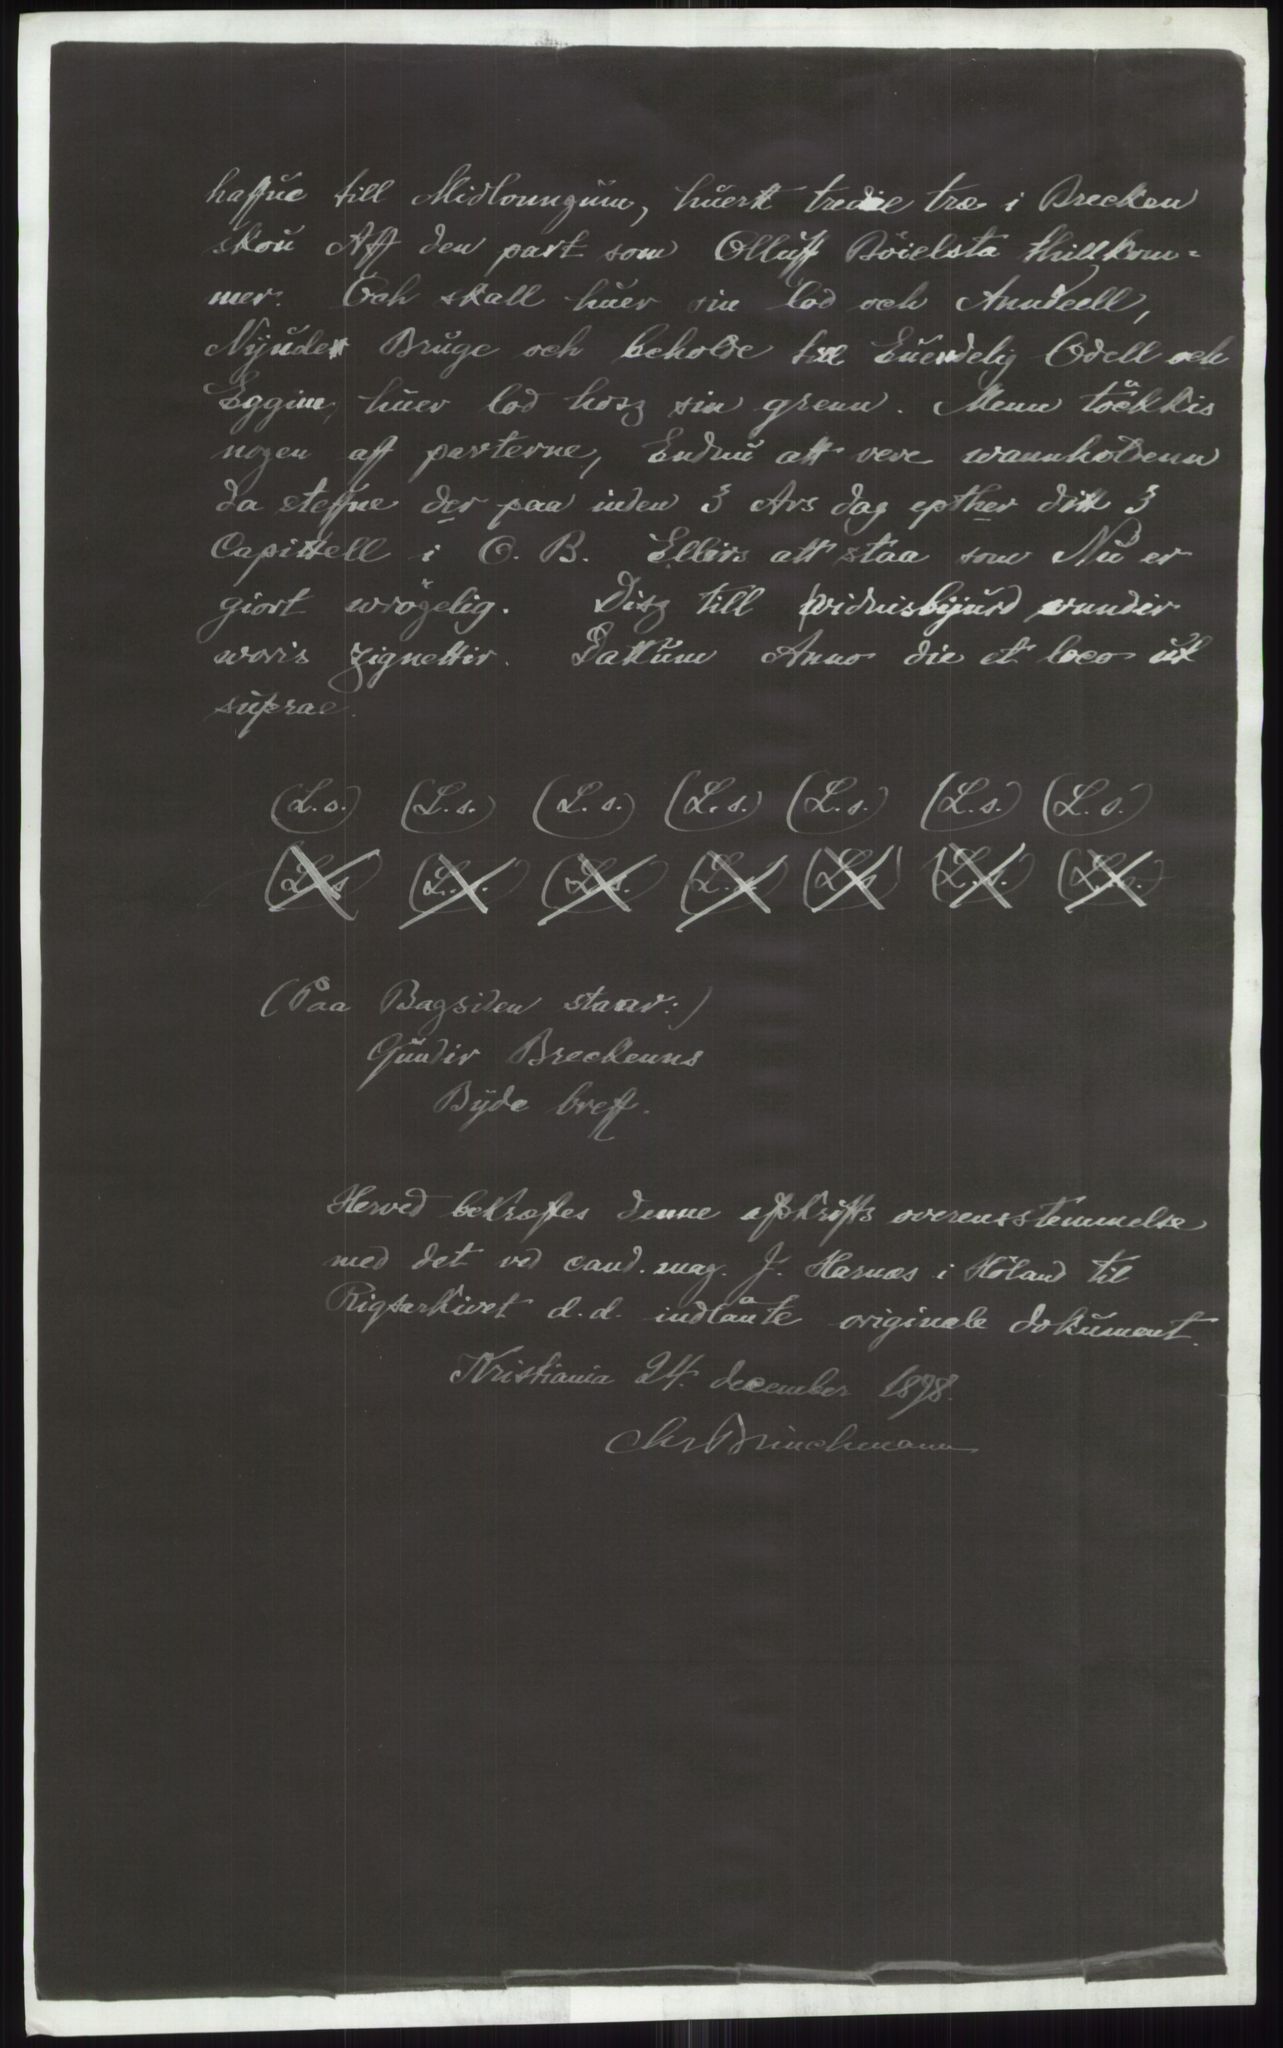 haffue till Midloungum, huertt tredie træ i Brecken
skou Aff den part som Olluff Böielsta thillkom=
mer. Och skall huer sin lod och Anndeell,
Nyude Bruge och beholde till Euerdelig Odell och
Eggim, huer lod hosz sin grenn. Menn töckkis
nogen aff parterne, Endnu att vere wannholdenn
da steffne der paa inden 3 Ars dag epther ditt 3
Capittell i O. B. Ellirs att staa som Nu er
giort wrögelig. Disz till widnisbyurd wundir
woris zignettir. Dattum Anno die et loco ut
suprae.
(L.s.) (L.s.) (L.s.) (L.s.) (L.s.) (L.s.) (L.s.)
(L.s.) (L.s.) (L.s.) (L.s.) (L.s.) (L.s.) (L.s.)
(Paa Bagsiden staar:)
Gundir Breckenns
Byde breff.
Herved bekræftes denne afskrifts overensstemmelse
med det ved cand. mag. J. Harnæs i Höland til
Rigsarkivet d.d. indlånte originale dokument.
Kristiania 24. december 1898.
Chr Brinchmann